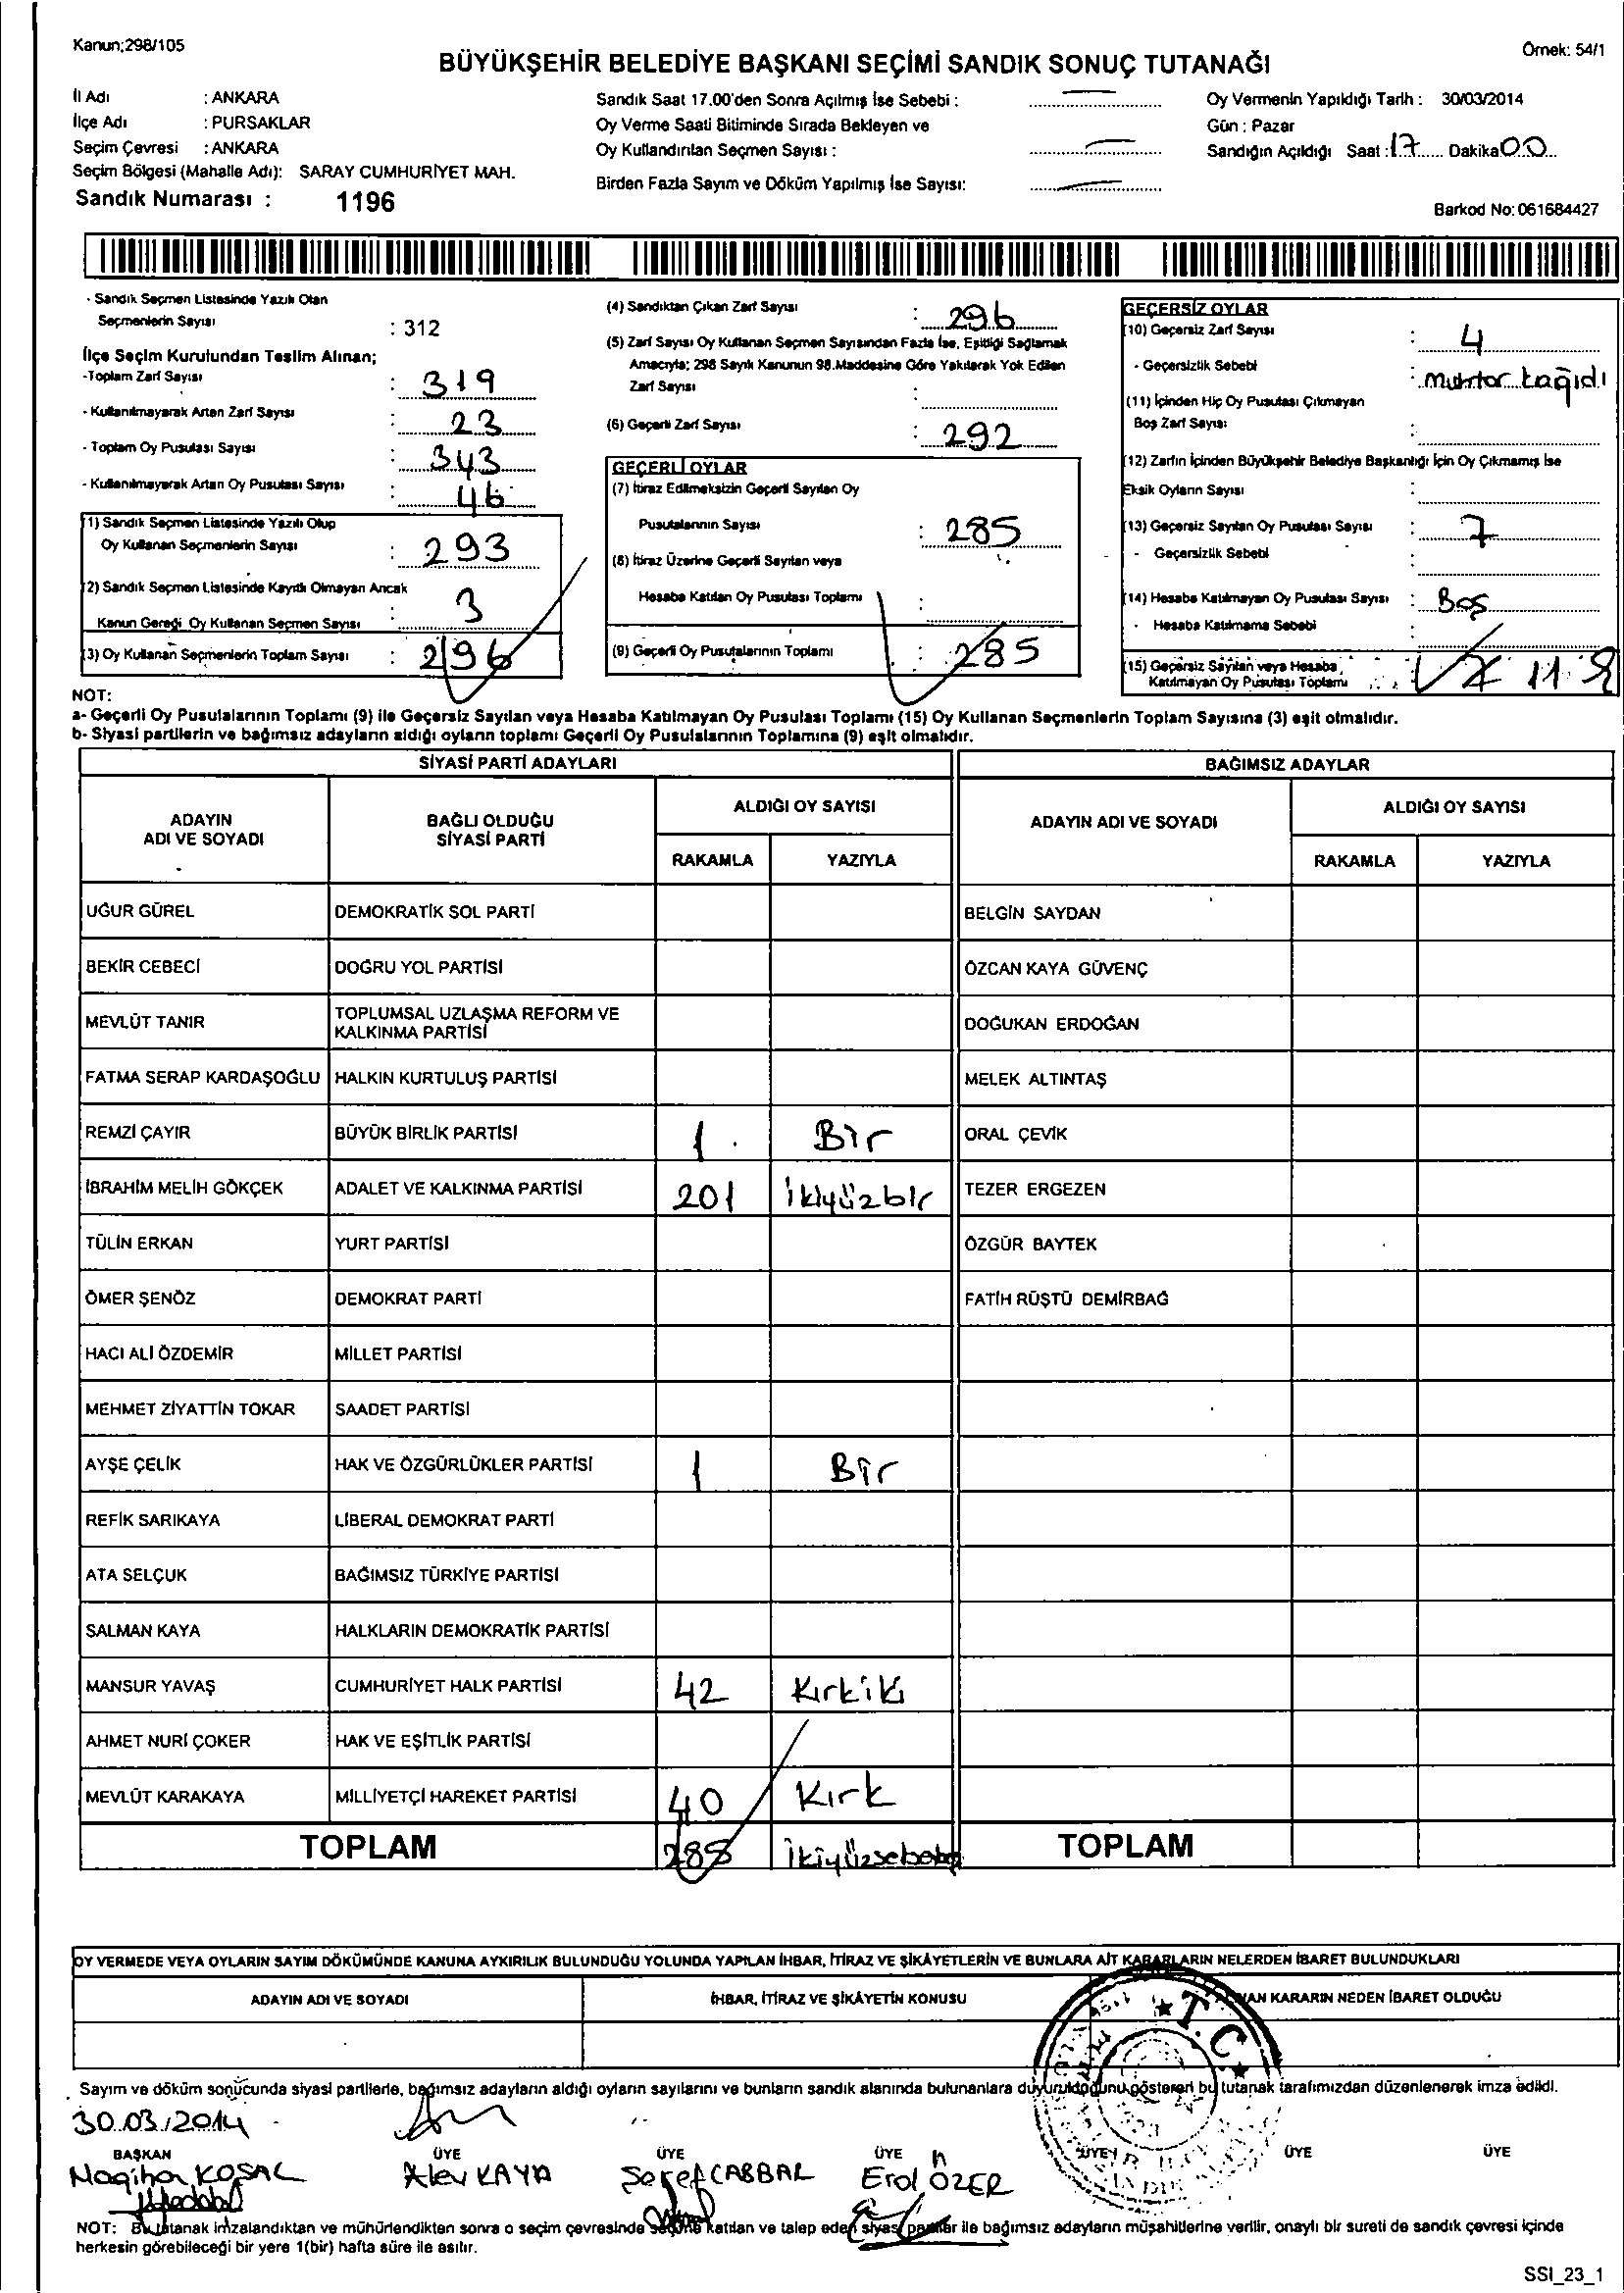 Kanun;298/105
Örnek: 54/1
BÜYÜKŞEHİR BELEDİYE BAŞKANI SEÇİMİ SANDIK SONUÇ TUTANAĞI
İl Adı : ANKARA
İlçe Adı : PURSAKLAR
Seçim Çevresi : ANKARA
Seçim Bölgesi (Mahalle Adı): SARAY CUMHURİYET MAH.
Sandık Numarası : 1196
Sandık Saat 17.00'den Sonra Açılmış İse Sebebi :
Oy Verme Saati Bitiminde Sırada Bekleyen ve
Oy Kullandırılan Seçmen Sayısı :
Birden Fazla Sayım ve Döküm Yapılmış İse Sayısı:
Oy Vermenin Yapıldığı Tarih : 30/03/2014
Gün : Pazar
Sandığın Açıldığı Saat : 17 Dakika 00
Barkod No: 061684427
- Sandık Seçmen Listesinde Yazılı Olan
Seçmenlerin Sayısı : 312
İlçe Seçim Kurulundan Teslim Alınan;
-Toplam Zarf Sayısı : 319
- Kullanılmayarak Artan Zarf Sayısı : 23
- Toplam Oy Pusulası Sayısı : 343
- Kullanılmayarak Artan Oy Pusulası Sayısı : 46
(1) Sandık Seçmen Listesinde Yazılı Olup
Oy Kullanan Seçmenlerin Sayısı : 293
(2) Sandık Seçmen Listesinde Kayıtlı Olmayan Ancak
Kanun Gereği Oy Kullanan Seçmen Sayısı : 3
(3) Oy Kullanan Seçmenlerin Toplam Sayısı : 296
(4) Sandıktan Çıkan Zarf Sayısı : 296
(5) Zarf Sayısı Oy Kullanan Seçmen Sayısından Fazla İse, Eşitliği Sağlamak
Amacıyla; 298 Sayılı Kanunun 98.Maddesine Göre Yakılarak Yok Edilen
Zarf Sayısı :
(6) Geçerli Zarf Sayısı : 292
GEÇERLİ OYLAR
(7) İtiraz Edilmeksizin Geçerli Sayılan Oy
Pusulalarının Sayısı : 285
(8) İtiraz Üzerine Geçerli Sayılan veya
Hesaba Katılan Oy Pusulası Toplamı :
(9) Geçerli Oy Pusulalarının Toplamı : 285
GEÇERSİZ OYLAR
(10) Geçersiz Zarf Sayısı : 4
- Geçersizlik Sebebi : muhtar kağıdı
(11) İçinden Hiç Oy Pusulası Çıkmayan
Boş Zarf Sayısı :
(12) Zarfın İçinden Büyükşehir Belediye Başkanlığı İçin Oy Çıkmamış İse
Eksik Oyların Sayısı :
(13) Geçersiz Sayılan Oy Pusulası Sayısı : 7
- Geçersizlik Sebebi :
(14) Hesaba Katılmayan Oy Pusulası Sayısı : Boş
- Hesaba Katılmama Sebebi :
(15) Geçersiz Sayılan veya Hesaba
Katılmayan Oy Pusulası Toplamı : 11
NOT:
a- Geçerli Oy Pusulalarının Toplamı (9) ile Geçersiz Sayılan veya Hesaba Katılmayan Oy Pusulası Toplamı (15) Oy Kullanan Seçmenlerin Toplam Sayısına (3) eşit olmalıdır.
b- Siyasi partilerin ve bağımsız adayların aldığı oyların toplamı Geçerli Oy Pusulalarının Toplamına (9) eşit olmalıdır.
SİYASİ PARTİ ADAYLARI
BAĞIMSIZ ADAYLAR
ADAYIN ADI VE SOYADI
BAĞLI OLDUĞU SİYASİ PARTİ
ALDIĞI OY SAYISI
RAKAMLA YAZIYLA
ADAYIN ADI VE SOYADI
ALDIĞI OY SAYISI
RAKAMLA YAZIYLA
UĞUR GÜREL DEMOKRATİK SOL PARTİ BELGİN SAYDAN
BEKİR CEBECİ DOĞRU YOL PARTİSİ ÖZCAN KAYA GÜVENÇ
MEVLÜT TANIR TOPLUMSAL UZLAŞMA REFORM VE KALKINMA PARTİSİ DOĞUKAN ERDOĞAN
FATMA SERAP KARDAŞOĞLU HALKIN KURTULUŞ PARTİSİ MELEK ALTINTAŞ
REMZİ ÇAYIR BÜYÜK BİRLİK PARTİSİ 1 Bir ORAL ÇEVİK
İBRAHİM MELİH GÖKÇEK ADALET VE KALKINMA PARTİSİ 201 ikiyüzbir TEZER ERGEZEN
TÜLİN ERKAN YURT PARTİSİ ÖZGÜR BAYTEK
ÖMER ŞENÖZ DEMOKRAT PARTİ FATİH RÜŞTÜ DEMİRBAĞ
HACI ALİ ÖZDEMİR MİLLET PARTİSİ
MEHMET ZİYATTİN TOKAR SAADET PARTİSİ
AYŞE ÇELİK HAK VE ÖZGÜRLÜKLER PARTİSİ 1 Bir
REFİK SARIKAYA LİBERAL DEMOKRAT PARTİ
ATA SELÇUK BAĞIMSIZ TÜRKİYE PARTİSİ
SALMAN KAYA HALKLARIN DEMOKRATİK PARTİSİ
MANSUR YAVAŞ CUMHURİYET HALK PARTİSİ 42 Kırkiki
AHMET NURİ ÇOKER HAK VE EŞİTLİK PARTİSİ
MEVLÜT KARAKAYA MİLLİYETÇİ HAREKET PARTİSİ 40 Kırk
TOPLAM TOPLAM
OY VERMEDE VEYA OYLARIN SAYIM DÖKÜMÜNDE KANUNA AYKIRILIK BULUNDUĞU YOLUNDA YAPILAN İHBAR, İTİRAZ VE ŞİKÂYETLERİN VE BUNLARA AİT KARARLARIN NELERDEN İBARET BULUNDUKLARI
ADAYIN ADI VE SOYADI İHBAR, İTİRAZ VE ŞİKÂYETİN KONUSU KARARIN NEDEN İBARET OLDUĞU
T.C.
Sayım ve döküm sonucunda siyasi partilerle, bağımsız adayların aldığı oyların sayılarını ve bunların sandık alanında bulunanlara duyurulduğunu gösteren bu tutanak tarafımızdan düzenlenerek imza edildi.
30.03.2014
BAŞKAN ÜYE ÜYE ÜYE ÜYE ÜYE ÜYE
KOSAL Alev KAYA Şeref CABBAL Erol ÖZER
NOT: Bu tutanak imzalandıktan ve mühürlendikten sonra o seçim çevresinde seçime katılan ve talep eden siyasi partiler ile bağımsız adayların müşahitlerine verilir, onaylı bir sureti de sandık çevresi içinde
herkesin görebileceği bir yere 1(bir) hafta süre ile asılır.
SSI_23_1